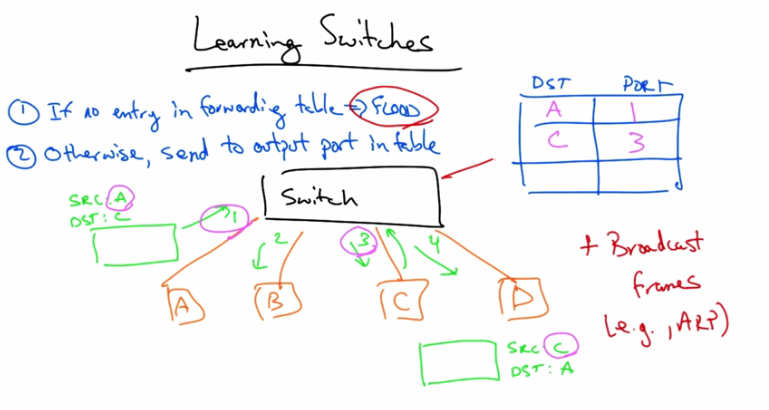 Learning Switches
① If no entry in forwarding table => FLOOD
② Otherwise, send to output port in table
DST PORT
A 1
C 3
Switch
SRC: A
DST: C
1
2
3
4
A
B
C
D
+ Broadcast
frames
(e.g., ARP)
SRC: C
DST: A